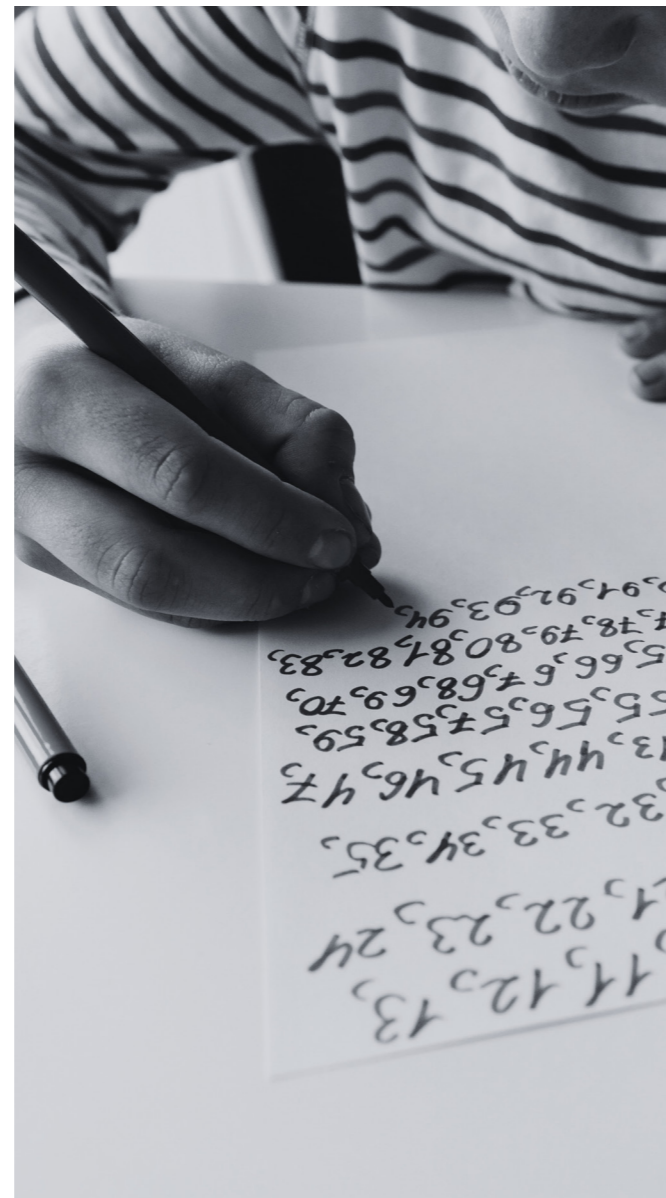 11, 12, 13,
1, 22, 23, 24
32, 33, 34, 35,
3, 44, 45, 46, 47,
55, 56, 57, 58, 59,
5, 66, 67, 68, 69, 70,
7, 78, 79, 80, 81, 82, 83,
91, 92, 93, 94,